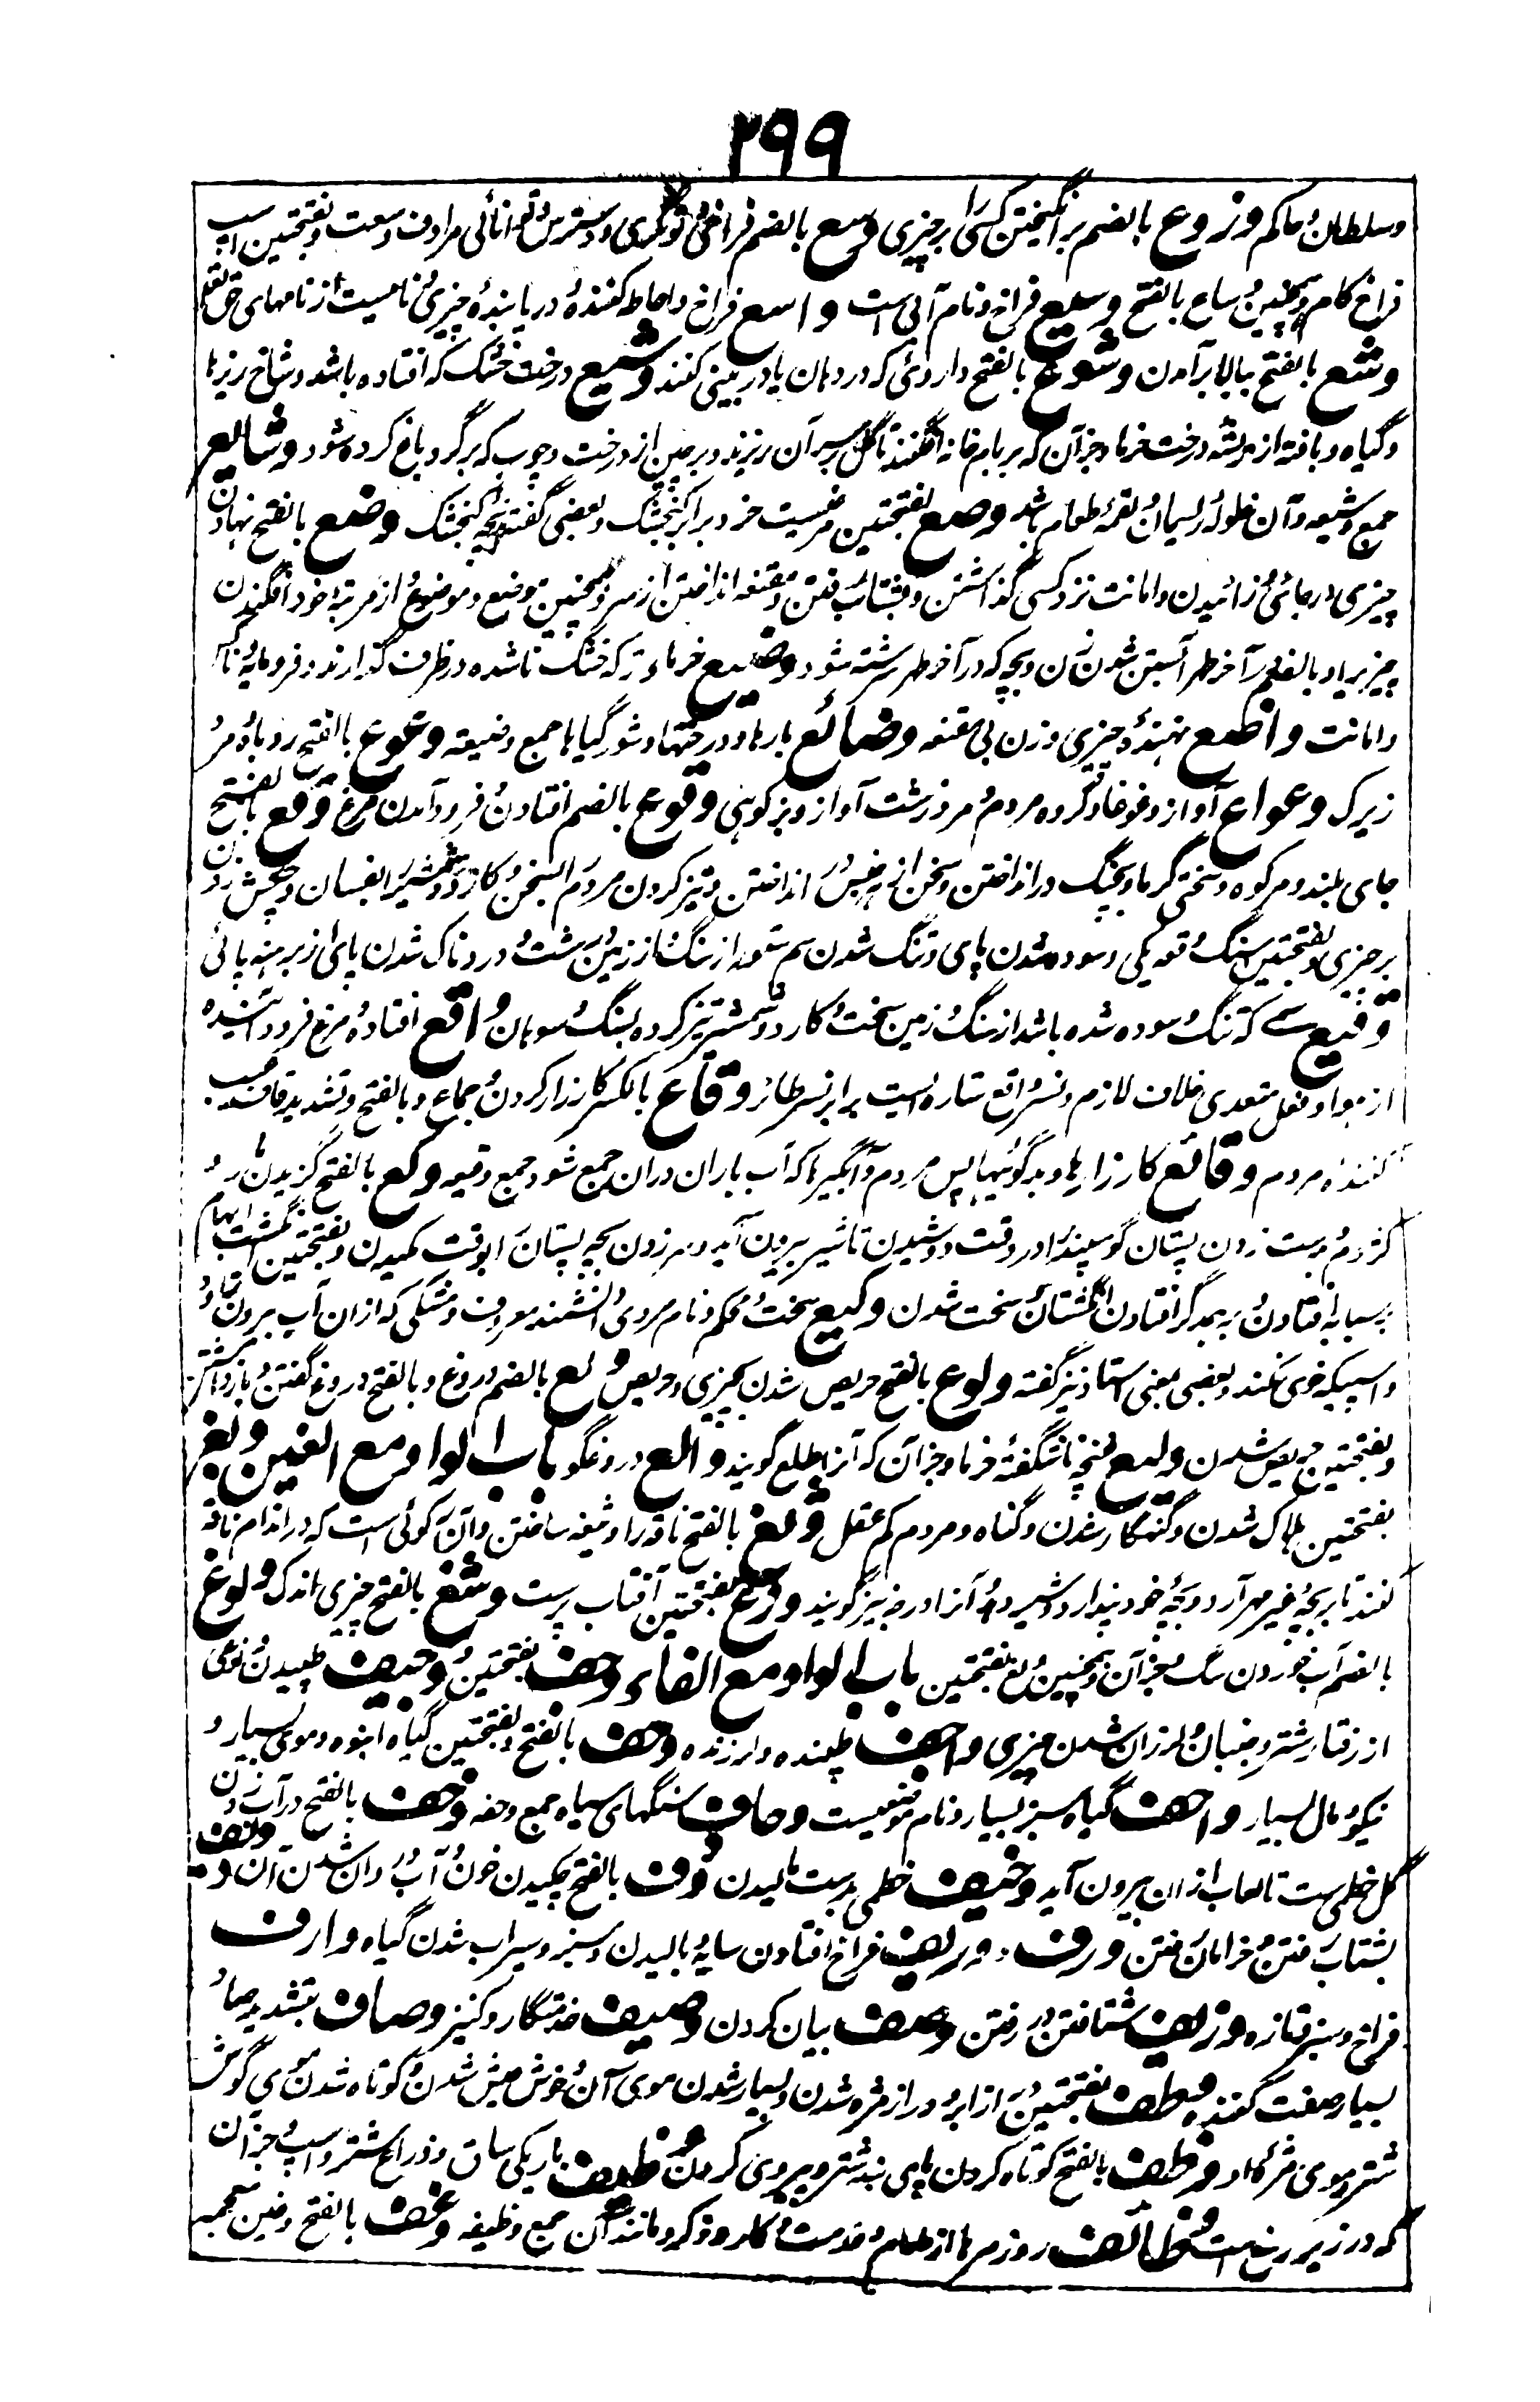 ۲۹۹
وسلطان و حاکم وزوع بالضم برانگیختن کسی را بر چیزی وسع بالضم فراخی و توانگری و دسترس و توانائی مرادف وسعت و بفتحتین اسپ
فراخ کام و همچنین وساع بالفتح وسیع فراخ و نام آبی است واسع فراخ و احاطه کننده و دریابنده چیزی و نامیست از نامهای حق تعالی
وشع بالفتح ببالا برآمدن وشوع بالفتح داروئی که در دهان یا در بینی کنند وشیع درخت خشک که افتاده باشد و شاخ ریزها
و گیاه و بافته از درخت خرما و جز آن که بر بام خانه افگنند تا گل بر سر آن ریزند و پرچین از درخت و چوب که بر گرد باغ کرده شود وشایع
جمع وشیعه و آن غلوله ریسمان و لقمه طعام باشد وصع بفتحتین مرغیست خرد برابر کنجشک و بعضی گفته بچه کنجشک وضع بالفتح نهادن
چیزی در جائی و زائیدن و امانت نزد کسی گذاشتن و بشتاب رفتن و مقنعه انداختن از سر و همچنین وضع و موضوع از مرتبه خود افگندن
چیزیرا و بالضم در آخر طهر آبستن شدن زن و بچه که در آخر طهر سرشته شود وضیع خرماء تر که خشک ناشده در ظرف گذارند و فرومایه و ناکس
و امانت واضع نهنده چیزی و زن بی مقنعه وضائع بارها و درختها و شور گیاها جمع وضیعه وعوع بالفتح روباه و مرد
زیرک وعواع آواز و غوغا و گروه مردم و مرد زشت آواز و بز کوهی وقوع بالضم افتادن و فرود آمدن مرغ وقع بالفتح
جای بلند و سر کوه و سختی گرما و بجنگ در انداختن و سخن از پس در انداختن و تیز کردن کارد و شمشیر افسان و چکش زدن
بر چیزی و بفتحتین سنگ و سوده شدن پای و تنگ شدن سم ستور از سنگ و از زمین درشت و دردناک شدن پای از برهنه پائی
وقیع سمی که تنگ و سوده شده باشد از سنگ و زمین سخت و کارد و شمشیر تیز کرده بسنگ و سوهان واقع افتاده و مرغ فرود آینده
از هوا و فعل متعدی خلاف لازم و نسر واقع ستاره ایست برابر نسر طائر وقاع بالکسر کارزار کردن و جماع و بالفتح و تشدید قاف غیبت
کننده مردم وقائع کارزارها و بدگوئیها پس مردم و آبگیرها که آب باران دران جمع شود جمع وقیعه وکع بالفتح گزیدن مار و
کژدم و دست زدن پستان گوسپند را در وقت دوشیدن تا شیر بیرون آید و سر زدن بچه پستان را بوقت مکیدن و بفتحتین انگشت ابهام
بر سبابه افتادن و بر یکدیگر افتادن انگشتان و سخت شدن وکیع سخت و محکم و نام مردی دانشمند معروف و مشکی که ازان آب بیرون نیاید
و اسپیکه خوی نکند و بعضی بمعنی استاد نیز گفته ولوع بالفتح حریص شدن بچیزی و حریص ولع بالضم دروغ و بالفتح دروغ گفتن و بازداشتن
و بفتحتین حریص شدن ولیع غنچه ناشگفته خرما و جز آن که آنرا طلع گویند والع دروغگو باب الواو مع الغین وتغ
بفتحتین هلاک شدن و گنهگار شدن و گناه و مردم کم عقل وثغ بالفتح ناقه را وثیغه ساختن و آن کوئی است که در اندام ناقه
کنند تا بر بچه غیر مهر آرد و بچه خود پندارد و شیر دهد و آنرا درجه نیز گویند وزغ بفتحتین آفتاب پرست وشغ بالفتح چیزی اندک ولوغ
بالضم آب خوردن سگ و جز آن و همچنین ولغ بفتحتین باب الواو مع الفاء وجف بفتحتین و وجیف طپیدن و نوعی
از رفتار شتر و جنبان و لرزان شدن چیزی واجف طپنده و لرزنده وحف بالفتح و بفتحتین گیاه انبوه و موی بسیار و
نیکو و مال بسیار واحف گیاه سبز بسیار و نام موضعیست وحاف سنگهای سیاه جمع وحفه وخف بالفتح در آب زدن
گل خطمی است تا لعاب ازان بیرون آید وخیف خطمی بدست مالیدن وذف بالفتح چکیدن خون و آب و روان شدن آن
بشتاب رفتن و خرامان رفتن ورف و وریف فراخ افتادن سایه و بالیدن و سبز و سیراب شدن گیاه وارف
فراخ و سبز و تازه وزیف شتافتن در رفتن وصف بیان کردن وصیف خدمتگار و کنیز وصاف بتشدید صاد
بسیار صفت کننده وطف بفتحتین درازی ابرو و دراز مژه شدن و بسیار شدن موی آن و خوش عیش شدن و کوتاه شدن موی گوش
شتر و موی مژگان او وظف بالفتح کوتاه کردن پای بند شتر و پیروی کردن وظیف باریکی ساق و ذراع شتر و اسپ و جز آن
که در زیر رسغ است وظائف روزمرها از طعام و خدمت و کار و ذکر و مانند آن جمع وظیفه وغف بالفتح و غین معجمه